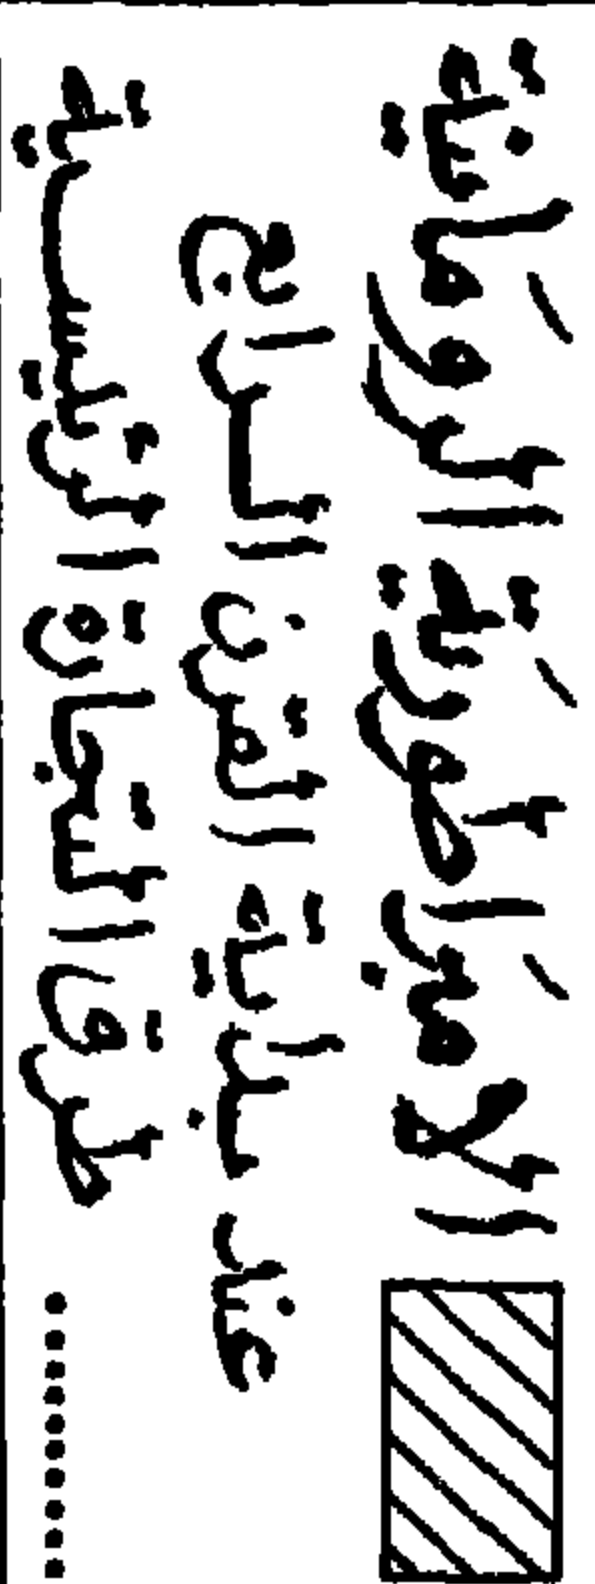 الامبَراطورَية الرومَانية
عند بداية القرن الرابع
طرق التجارة الرئيسية